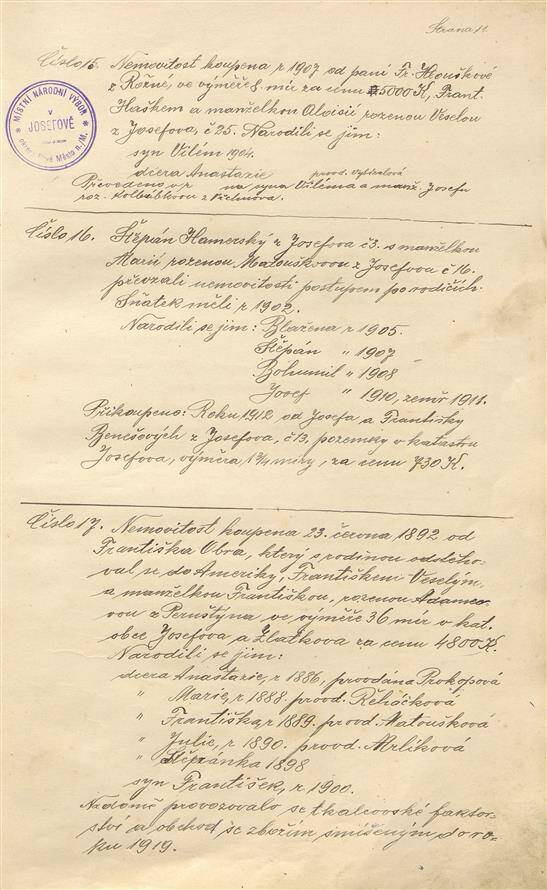 Strana 11.
Číslo 15. Nemovitost koupena r 1907 od paní Fr. Hlouškové
z Rožné, ve výměře 8 mír za cenu 5000 K, Frant.
Haškem a manželkou Aloisií rozenou Veselou
z Josefova, č 25. Narodili se jim:
syn Vilém 1904.
dcera Anastazie provd. Vybíralová
Převedeno v r na syna Viléma a manž. Josefu
roz. z Věchnova.
MÍSTNÍ NÁRODNÍ VÝBOR
v
JOSEFOVĚ
okres Nové Město n. M.
Číslo 16. Štěpán Hamerský z Josefova č 3. s manželkou
Marií rozenou Matouškovou z Josefova č 16.
převzali nemovitosti postupem po rodičích.
Sňatek měli r 1902.
Narodili se jim: Blažena r 1905.
Štěpán „ 1907
Bohumil „ 1908
Josef „ 1910, zemř 1911.
Přikoupeno: Roku 1912 od Josefa a Františky
Benešových z Josefova, č 13, pozemky v katastru
Josefova, výměra 1 3/4 míry, za cenu 730 K.
Číslo 17. Nemovitost koupena 23. června 1892 od
Františka Obra, který s rodinou odstěho-
val se do Ameriky, Františkem Veselým,
a manželkou Františkou, rozenou Adamco-
vou z Pernštýna ve výměře 36 mír v kat.
obce Josefova a Zlatkova za cenu 4800 K.
Narodili se jim:
dcera Anastazie, r 1886, provdána Prokopová
„ Marie, r 1888. provd. Řeháčková
„ Františka, r 1889. provd. Matoušková
„ Julie, r 1890. provd. Mrlíková
„ Štěpánka 1898
syn František, r 1900.
Na domě provozovalo se tkalcovské faktor-
ství a obchod se zbožím smíšeným do ro-
ku 1919.